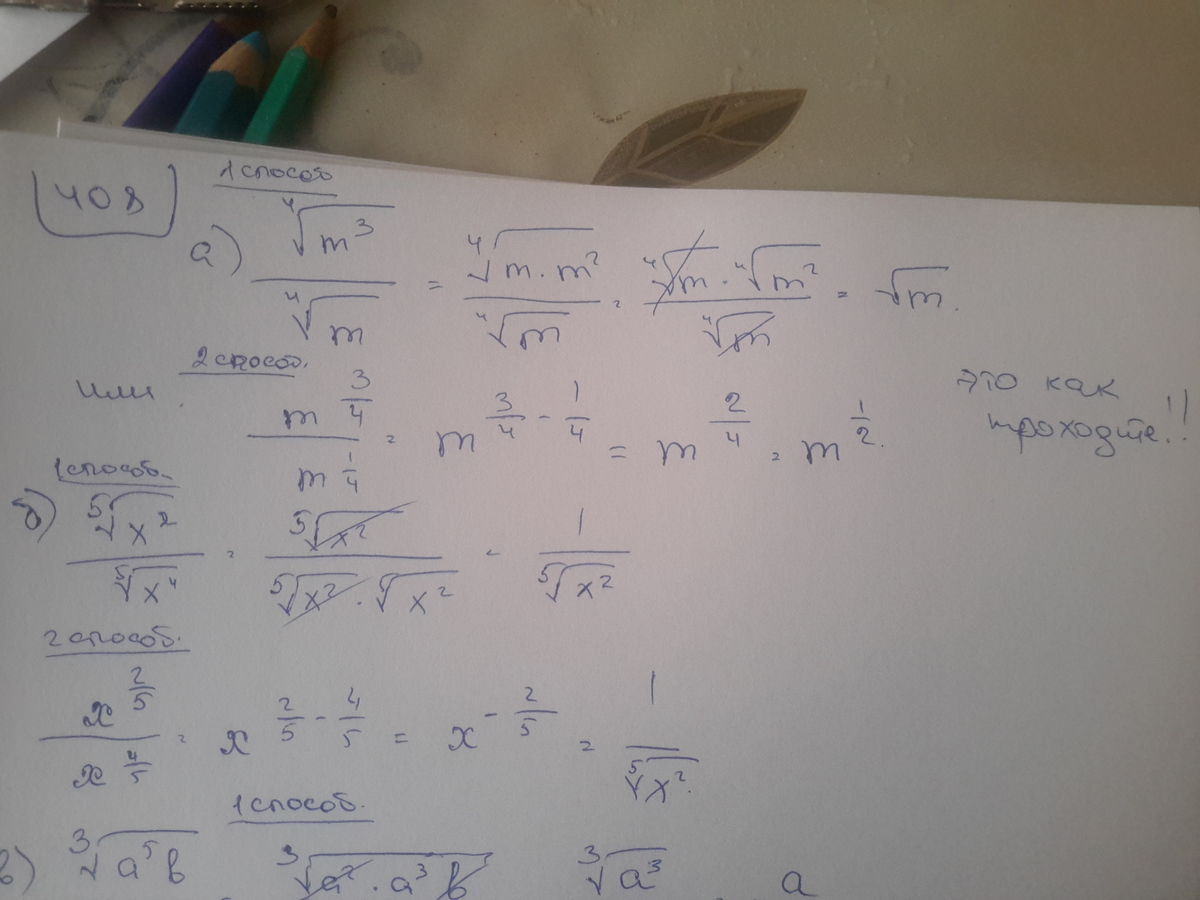 408
1 способ
а) ⁴√m³ / ⁴√m = ⁴√(m·m²) / ⁴√m = ⁴√m · ⁴√m² / ⁴√m = √m.
или 2 способ.
m^(3/4) / m^(1/4) = m^(3/4 - 1/4) = m^(2/4) = m^(1/2).
это как
проходите!!
1 способ.
б) ⁵√x² / ⁵√x⁴ = ⁵√x² / ⁵√x² · ⁵√x² = 1 / ⁵√x²
2 способ.
x^(2/5) / x^(4/5) = x^(2/5 - 4/5) = x^(-2/5) = 1 / ⁵√x².
1 способ.
в) ³√(a⁵b) ³√(a² · a³ b) ³√a³ a